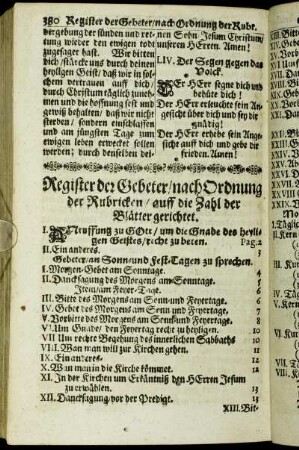 380 Register der Gebeter/nach Ordnung der Rubr.
vergebung der sünden und ret-
tung wieder den ewigen tode
zugesaget hast. Wir bitten
dich/stärcke uns durch deinen
heyligen Geist/daß wir in sol-
chem vertrauen auff dich/
durch Christum täglich zuneh-
men und die hoffnung fest und
gewiß behalten/ daß wir nicht
sterben/ sondern einschlaffen
und am jüngsten Tage zum
ewigen leben erwecket sollen
werden/ durch denselben dei-
nen Sohn Jesum Christum/
unseren HErren. Amen!
LIV. Der Segen gegen das
Volck.
Der HErr segne dich und
behüte dich!
Der HErr erleuchte sein An-
gesicht über dich und sey dir
gnädig!
Der HErr erhebe sein Ange-
sichte auff dich und gebe dir
frieden. Amen!
Register der Gebeter/nach Ordnung
der Rubricken/auff die Zahl der
Blätter gerichtet.
I. Anruffung zu GOtt/ um die Gnade des heyli-
gen Geistes/recht zu beten. Pag. 2
II. Ein anderes. 3
Gebeter/an Sonn/und Fest-Tagen zu sprechen.
I. Morgen-Gebet am Sonntage. 4
II. Dancksagung des Morgens am Sonntage. 5
Item/am Feyer-Tage.
III. Bitte des Morgens am Sonn-und Feyertage. 6
IV. Gebet des Morgens am Sonn-und Feyertage. 7
V. Vorbitte des Morgens am Sonn-und Feyertage. 8
VI. Um Gnade/ den Feyertag recht zu heyligen. 10
VII Um rechte Begehung des innerlichen Sabbaths 10
VIII. Wan man will zur Kirchen gehen. 11
IX. Ein anderes. 12
X. Wan man in die Kirche kömmet. 12
XI. In der Kirchen um Erkäntniß des HErren Jesum
zu erwählen. 13
XII. Dancksagung/vor der Predigt. 13
XIII. Bit-